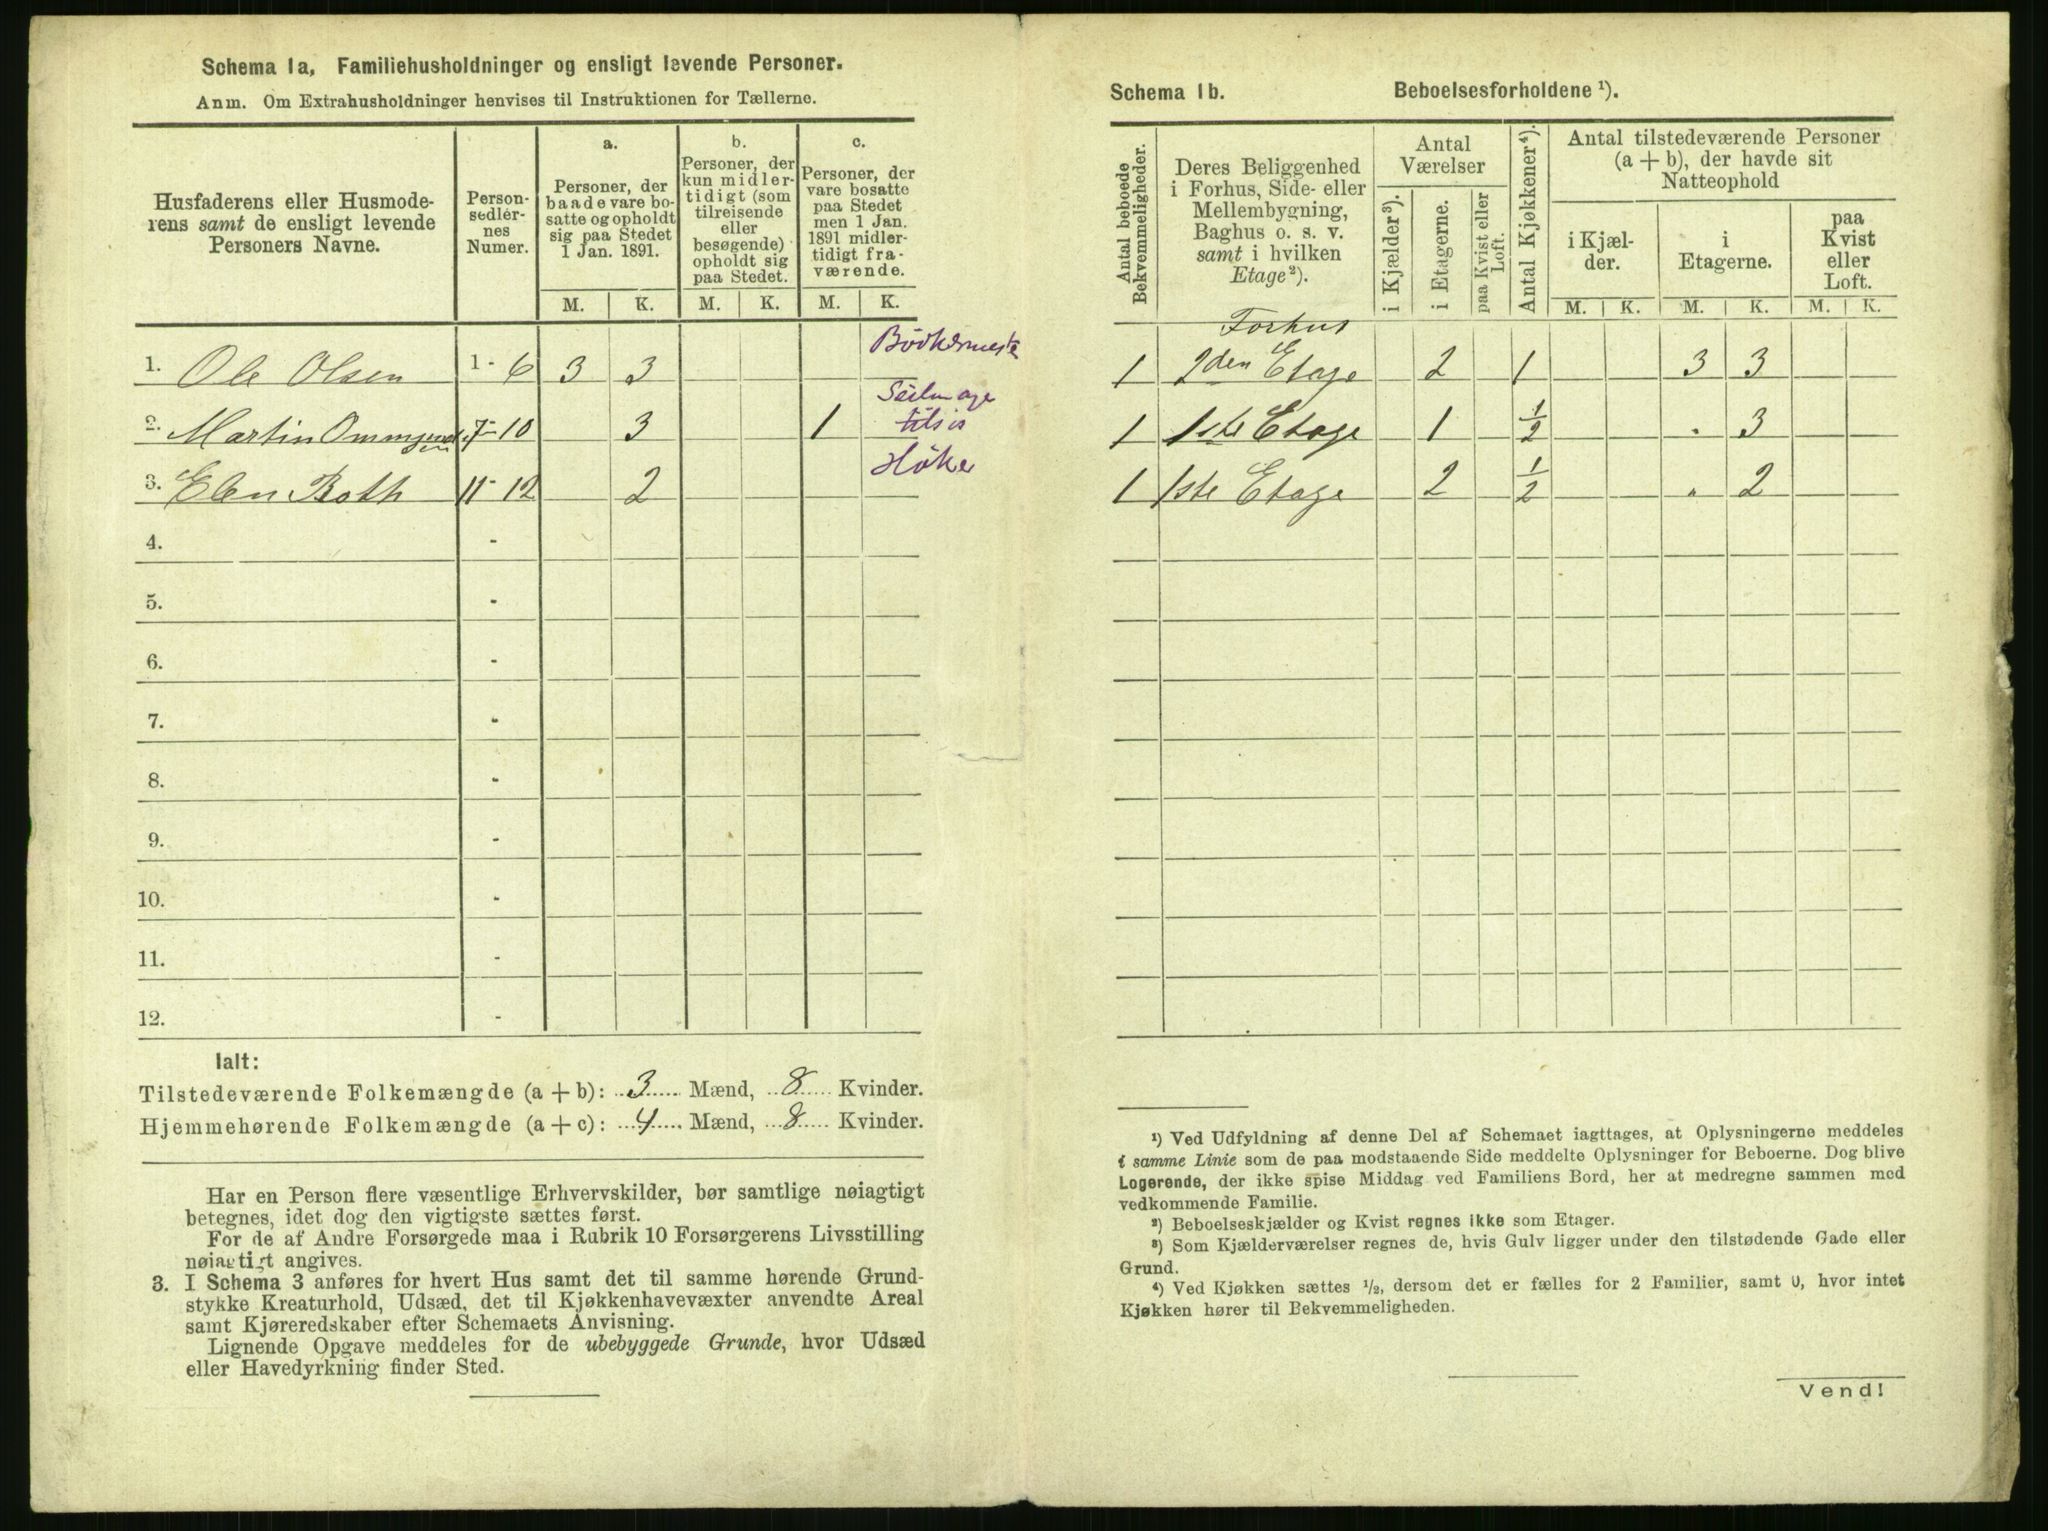 Schema 1a, Familiehusholdninger og ensligt levende Personer.
Anm. Om Extrahusholdninger henvises til Instruktionen for Tællerne.
Husfaderens eller Husmoderens samt de ensligt levende Personers Navne.
Personsedlernes Numer.
a.
Personer, der baade vare bosatte og opholdt sig paa Stedet 1 Jan. 1891.
b.
Personer, der kun midlertidigt (som tilreisende eller besøgende) opholdt sig paa Stedet.
c.
Personer, der vare bosatte paa Stedet men 1 Jan. 1891 midlertidigt fraværende.
M. K. M. K. M. K.
Bödkermester
1. Ole Olsen 1 - 6 3 3
Seilmager
2. Martin 7 - 10 3 1
Höker
3. Elen Both 11 - 12 2
4. -
5. -
6. -
7. -
8. -
9. -
10. -
11. -
12. -
Ialt:
Tilstedeværende Folkemængde (a + b): 3 Mænd, 8 Kvinder.
Hjemmehørende Folkemængde (a + c): 4 Mænd, 8 Kvinder.
Har en Person flere væsentlige Erhvervskilder, bør samtlige nøiagtigt
betegnes, idet dog den vigtigste sættes først.
For de af Andre Forsørgede maa i Rubrik 10 Forsørgerens Livsstilling
nøiagtigt angives.
3. I Schema 3 anføres for hvert Hus samt det til samme hørende Grund-
stykke Kreaturhold, Udsæd, det til Kjøkkenhavevæxter anvendte Areal
samt Kjøreredskaber efter Schemaets Anvisning.
Lignende Opgave meddeles for de ubebyggede Grunde, hvor Udsæd
eller Havedyrkning finder Sted.
Schema 1b. Beboelsesforholdene ¹).
Antal beboede Bekvemmeligheder.
Deres Beliggenhed i Forhus, Side- eller Mellembygning, Baghus o. s. v. samt i hvilken Etage ²).
Antal Værelser
i Kjælder ³).
i Etagerne.
paa Kvist eller Loft.
Antal Kjøkkener ⁴).
Antal tilstedeværende Personer (a + b), der havde sit Natteophold
i Kjælder.
i Etagerne.
paa Kvist eller Loft.
M. K. M. K. M. K.
Forhus
1 2den Etage 2 1 3 3
1 1ste Etage 1 ½ " 3
1 1ste Etage 2 ½ " 2
¹) Ved Udfyldning af denne Del af Schemaet iagttages, at Oplysningerne meddeles
i samme Linie som de paa modstaaende Side meddelte Oplysninger for Beboerne. Dog blive
Logerende, der ikke spise Middag ved Familiens Bord, her at medregne sammen med
vedkommende Familie.
²) Beboelseskjælder og Kvist regnes ikke som Etager.
³) Som Kjælderværelser regnes de, hvis Gulv ligger under den tilstødende Gade eller
Grund.
⁴) Ved Kjøkken sættes ½, dersom det er fælles for 2 Familier, samt 0, hvor intet
Kjøkken hører til Bekvemmeligheden.
Vend!